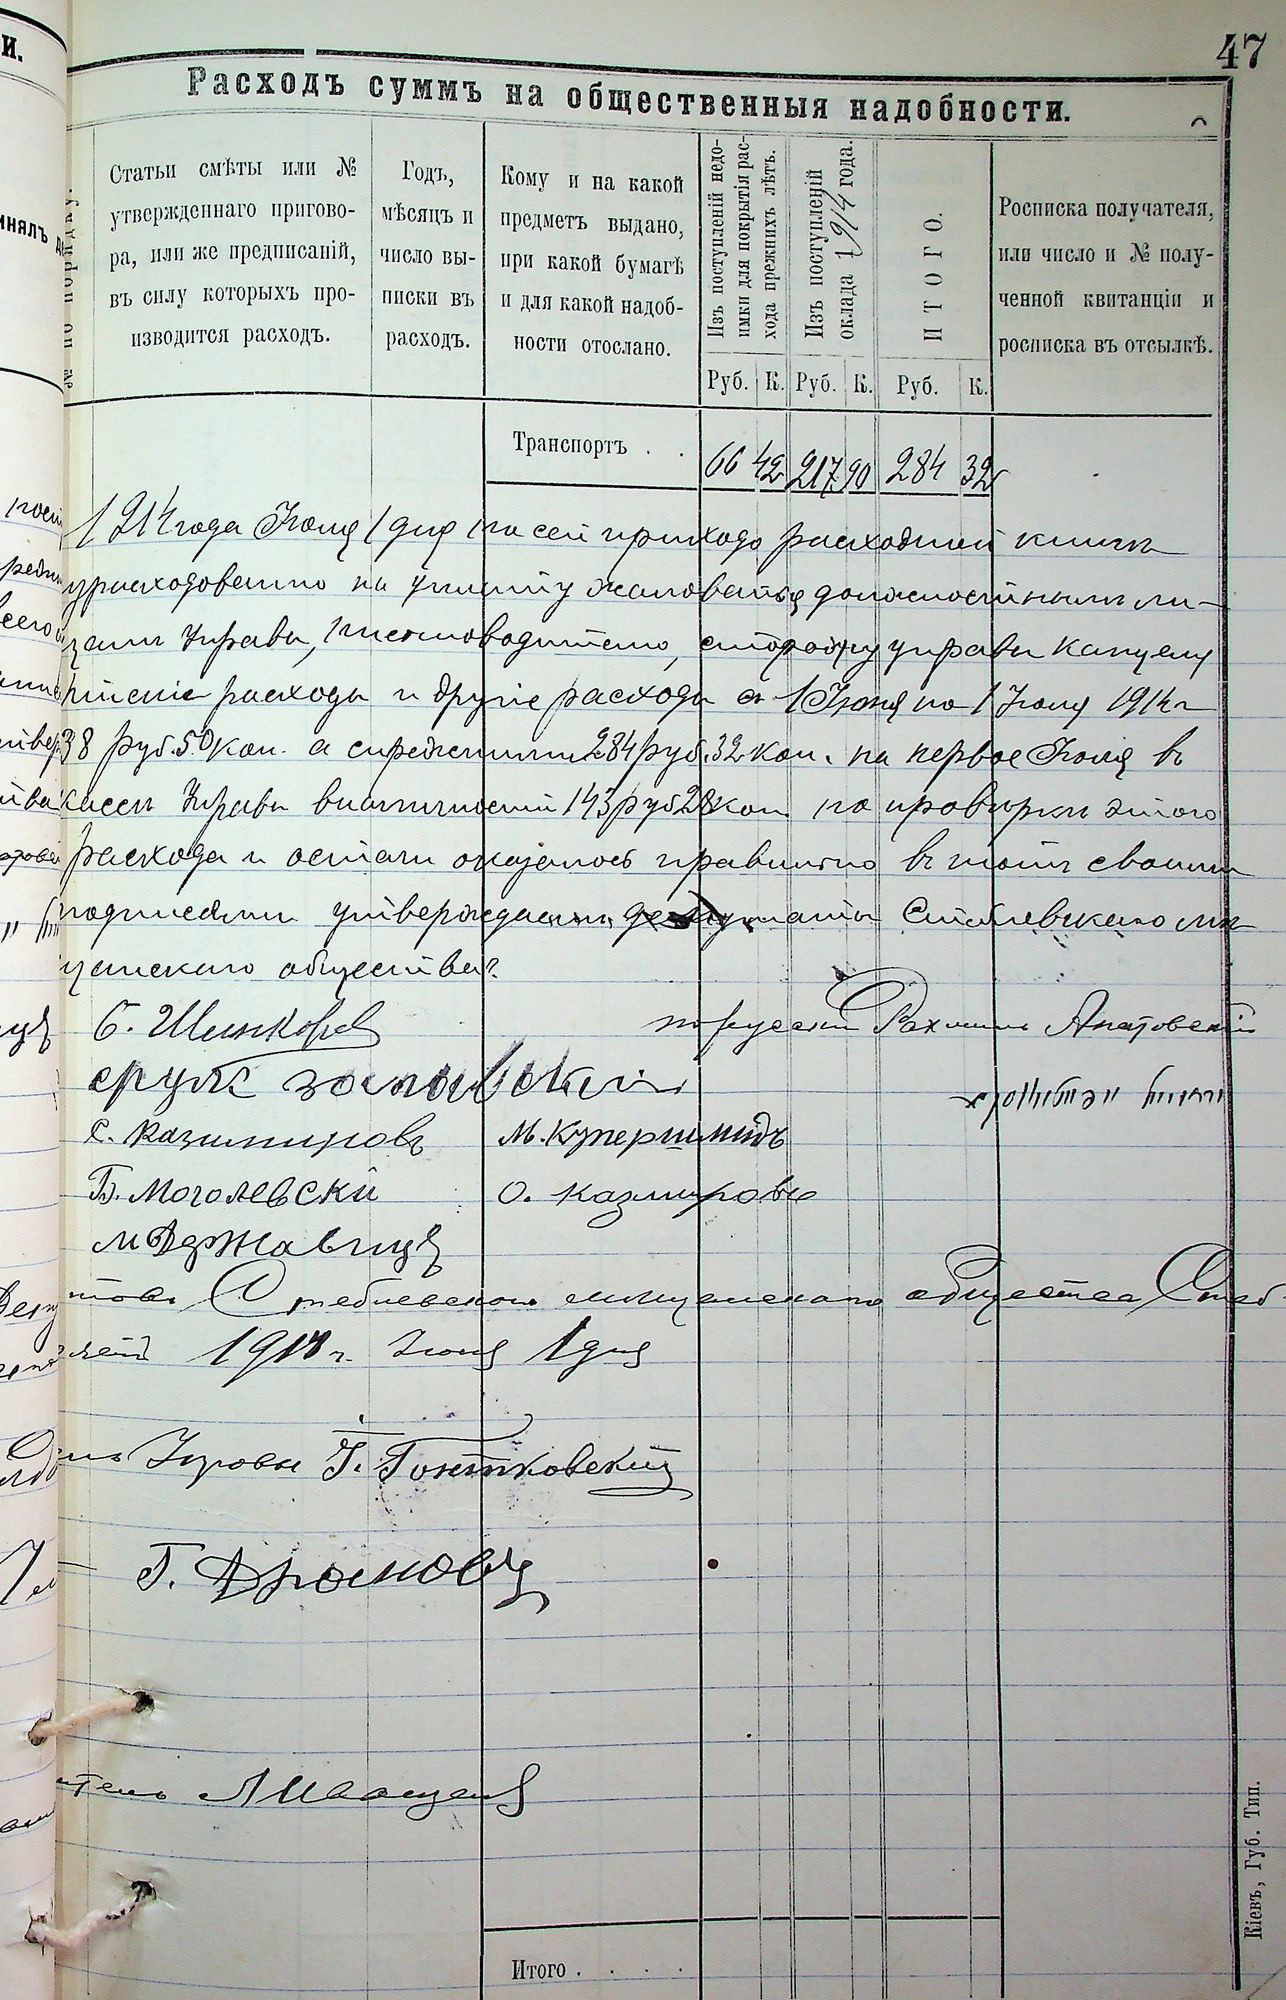 47
Расходъ суммъ на общественныя надобности.
№ по порядку.
Статьи смѣты или №
утвержденнаго пригово-
ра, или же предписаній,
въ силу которыхъ про-
изводится расходъ.
Годъ,
мѣсяцъ и
число вы-
писки въ
расходъ.
Кому и на какой
предметъ выдано,
при какой бумагѣ
и для какой надоб-
ности отослано.
Изъ поступленій недо-
имки для покрытія рас-
хода прежнихъ лѣтъ.
Изъ поступленій
оклада 1914 года.
ИТОГО.
Росписка получателя,
или число и № полу-
ченной квитанціи и
росписка въ отсылкѣ.
Руб. К. Руб. К. Руб. К.
Транспортъ . . 66 42 217 90 284 32
1914 года Июля 1 дня по сей приходо расходной книги
израсходованно на уплату жалованья должностнымъ ли-
цамъ Управы, писмоводителю, сторожу управы канцеля
рскіе расходы и другіе расходы с 1 Июня по 1 Июля 1914 г
38 руб. 50 коп. а с прежними 284 руб. 32 коп. на первое Июля в
кассе Управы в наличности 143 руб 28 коп по проверки этого
расхода и остачи оказалось правильно в томъ своими
подписями утверждаемъ депутаты Стеблевскаго мѣ
щанского общества.
Б. Шинкорев
срулъ
С. Казимировъ М. Купершмидъ
Б. Моголевски О. Казмировъ
Стеблевскаго мещанскаго общества Стеб-
1914 г. Июля 1 дня
Управы Г. Гонтковскій
Г.
Итого . . . .
Кіевъ, Губ. Тип.